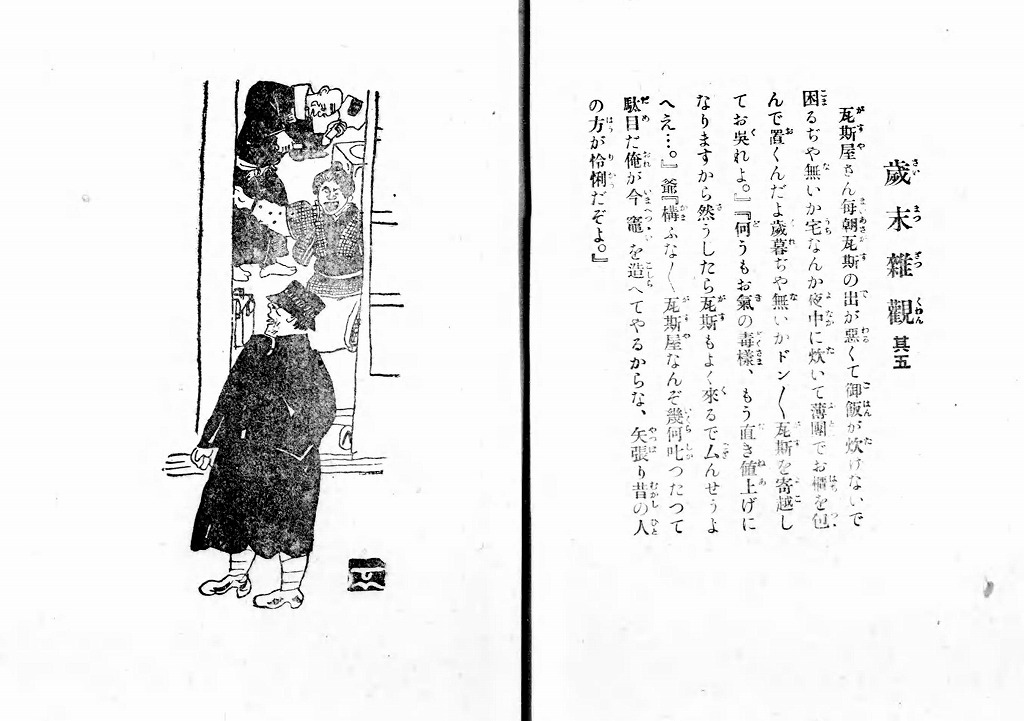 歲末雜觀 其五
瓦斯屋さん每朝瓦斯の出が惡くて御飯が炊けないで
困るぢや無いか宅なんか夜中に炊いて薄團でお櫃を包
んで置くんだよ歲暮ぢや無いかドン〳〵瓦斯を寄越し
てお吳れよ。』『何うもお氣の毒樣、もう直き値上げに
なりますから然うしたら瓦斯もよく來るで厶んせうよ
へえ…。』爺『構ふな〳〵瓦斯屋なんぞ幾何叱つたつて
駄目だ俺が今竈を造へてやるからな、矢張り昔の人
の方が怜悧だぞよ。』